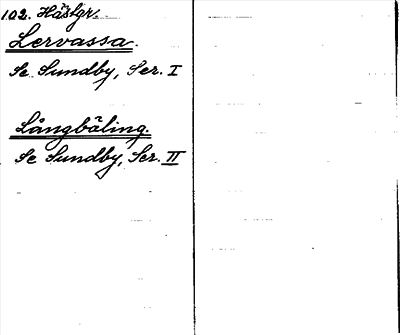 102. Hästgr.
Lervassa.
Se Sundby, Ser. I
Långbäling.
Se Sundby, Ser. II